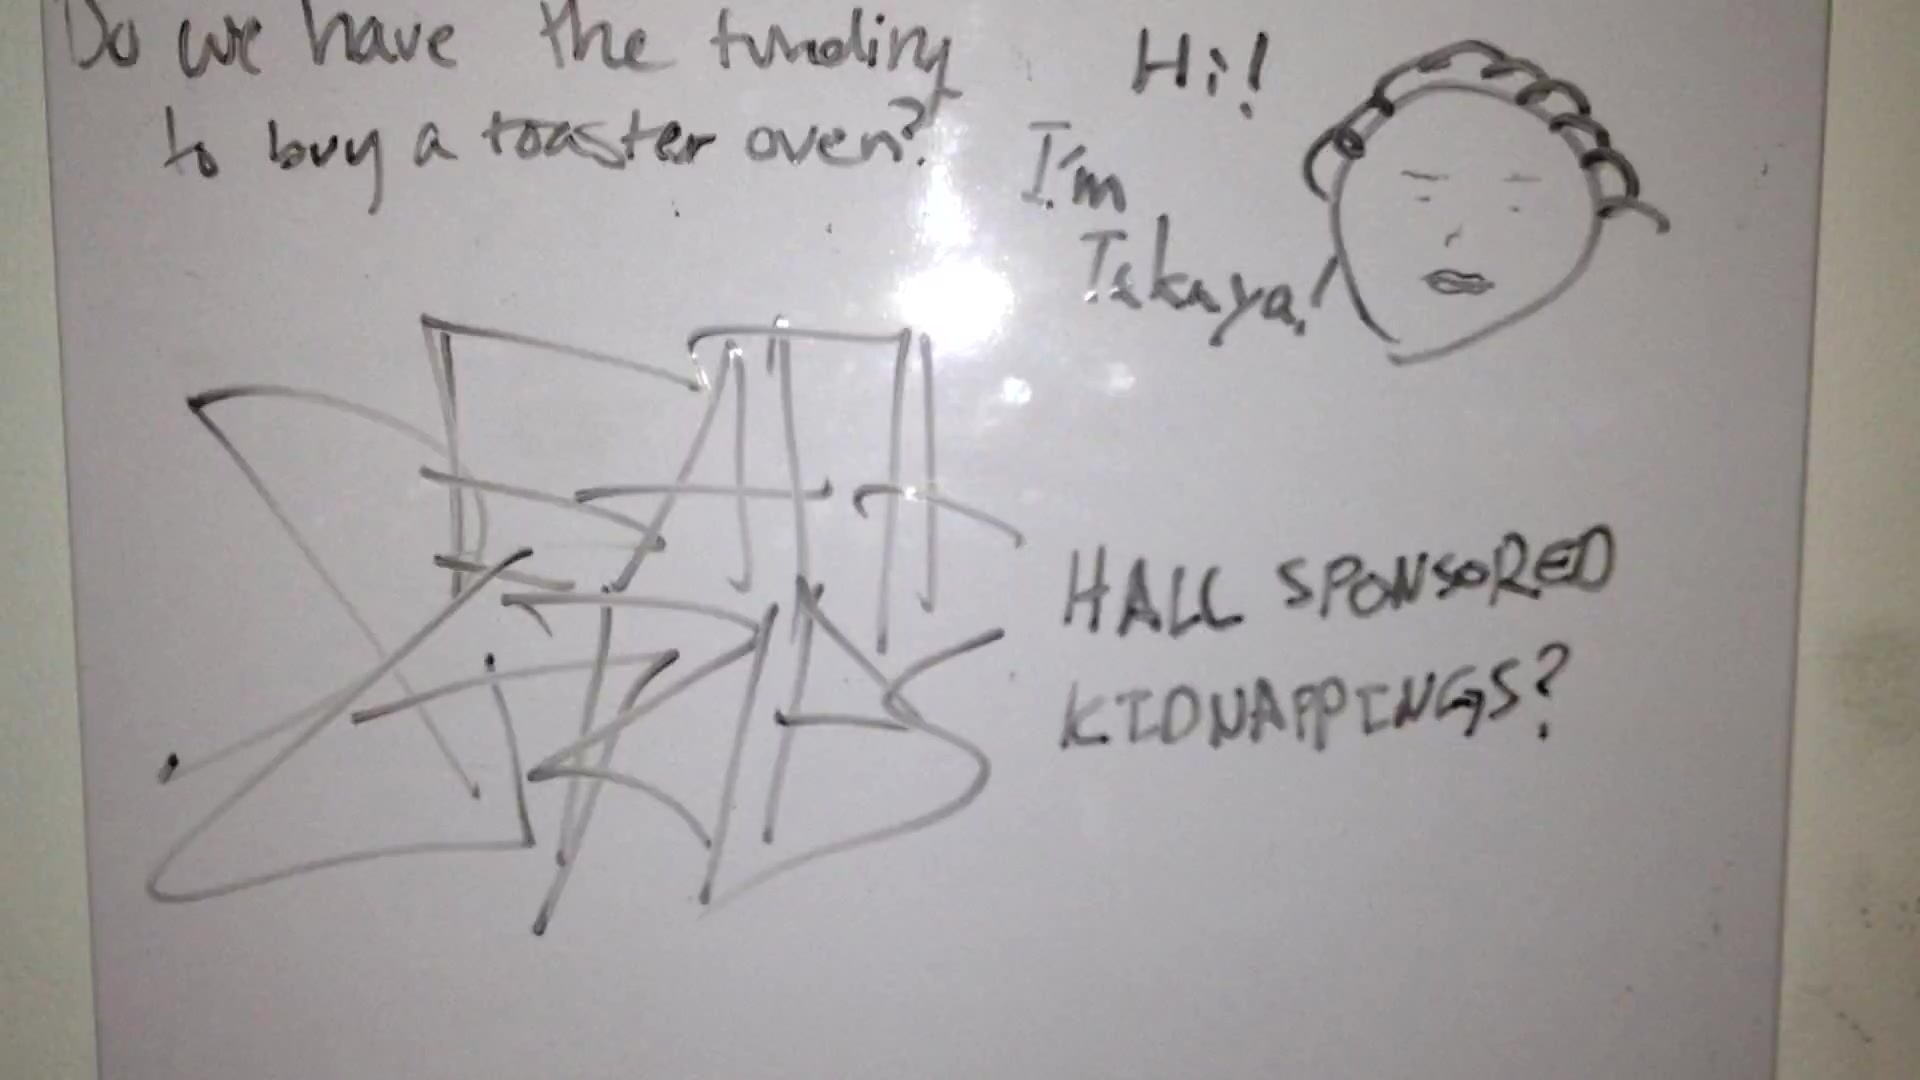 Do we have the funding
to buy a toaster oven?
Hi!
I'm
Takaya!
HALL SPONSORED
KIDNAPPINGS?